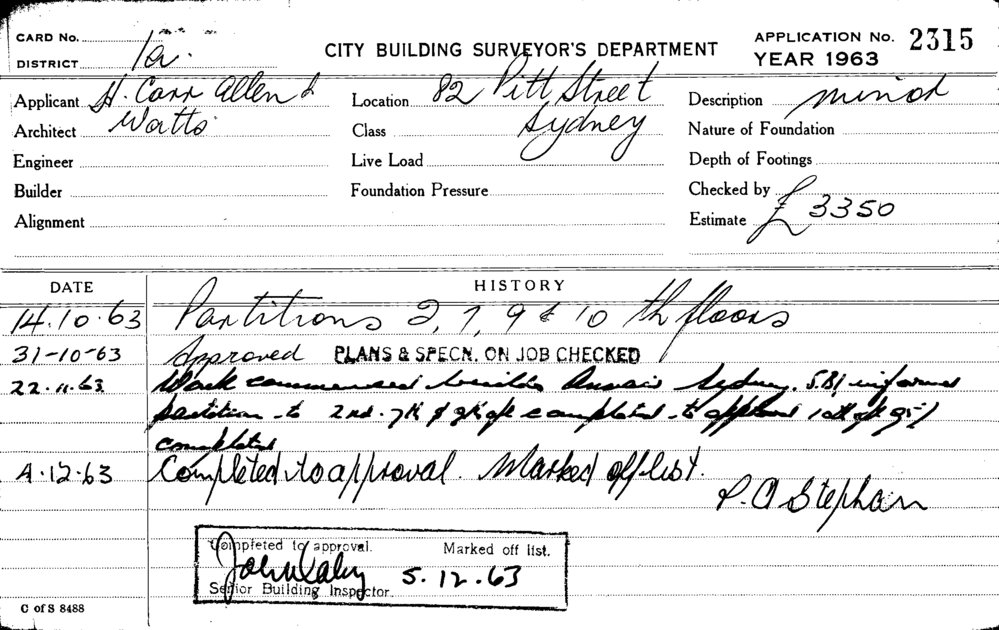 CARD No.
DISTRICT 1a.
CITY BUILDING SURVEYOR'S DEPARTMENT
APPLICATION No. 2315
YEAR 1963
Applicant H. Carr Allen &
Location 82 Pitt Street
Description minor
Architect Watts
Class Sydney
Nature of Foundation
Engineer
Live Load
Depth of Footings
Builder
Foundation Pressure
Checked by
Alignment
Estimate £3350
DATE HISTORY
14.10.63 Partitions 2, 7, 9 & 10 th floors
31-10-63 Approved PLANS & SPECN. ON JOB CHECKED
22.11.63 Work commenced Sydney. informed
partition to 2nd. 7th & 9th completed to
completed
4.12.63 Completed to approval. Marked off list.
P. O Stephan
Completed to approval. Marked off list.
5.12.63
Senior Building Inspector.
C of S 8488